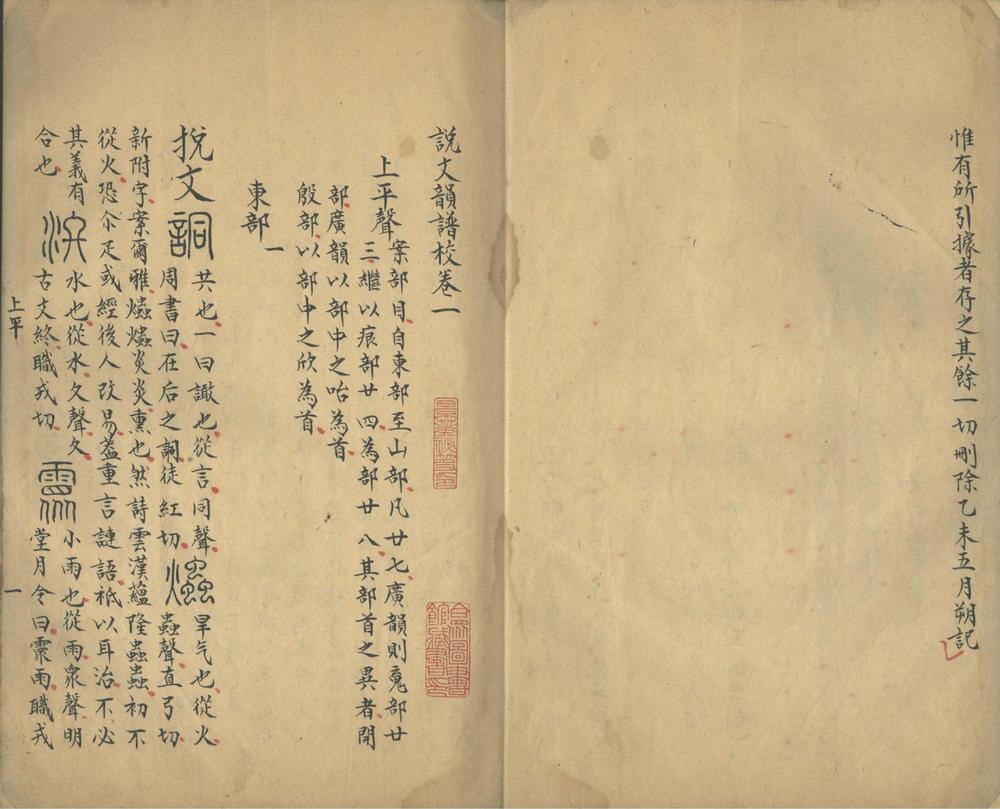 惟有所引據者存之其餘一切刪除乙未五月朔記
説文韻譜校卷一
上平聲
案部目自東部至山部凡廿七廣韻則寬部廿
三繼以痕部廿四為部廿八其部首之異者開
部廣韻以部中之咍為首
殷部以部中之欣為首
東部一
挩文
詷
共也一曰譀也從言同聲
周書曰在后之詷徒紅切
爞
旱气也從火
蟲聲直弓切
新附字案爾雅爞爞炎炎熏也然詩雲漢蘊隆蟲蟲初不
從火恐尒疋或經後人改易蓋重言謰語祇以耳治不必
其義有
合也
泈
水也從水夂聲夂
古文終職戎切
霥
小雨也從雨衆聲明
堂月令曰霥雨職戎
上平
一